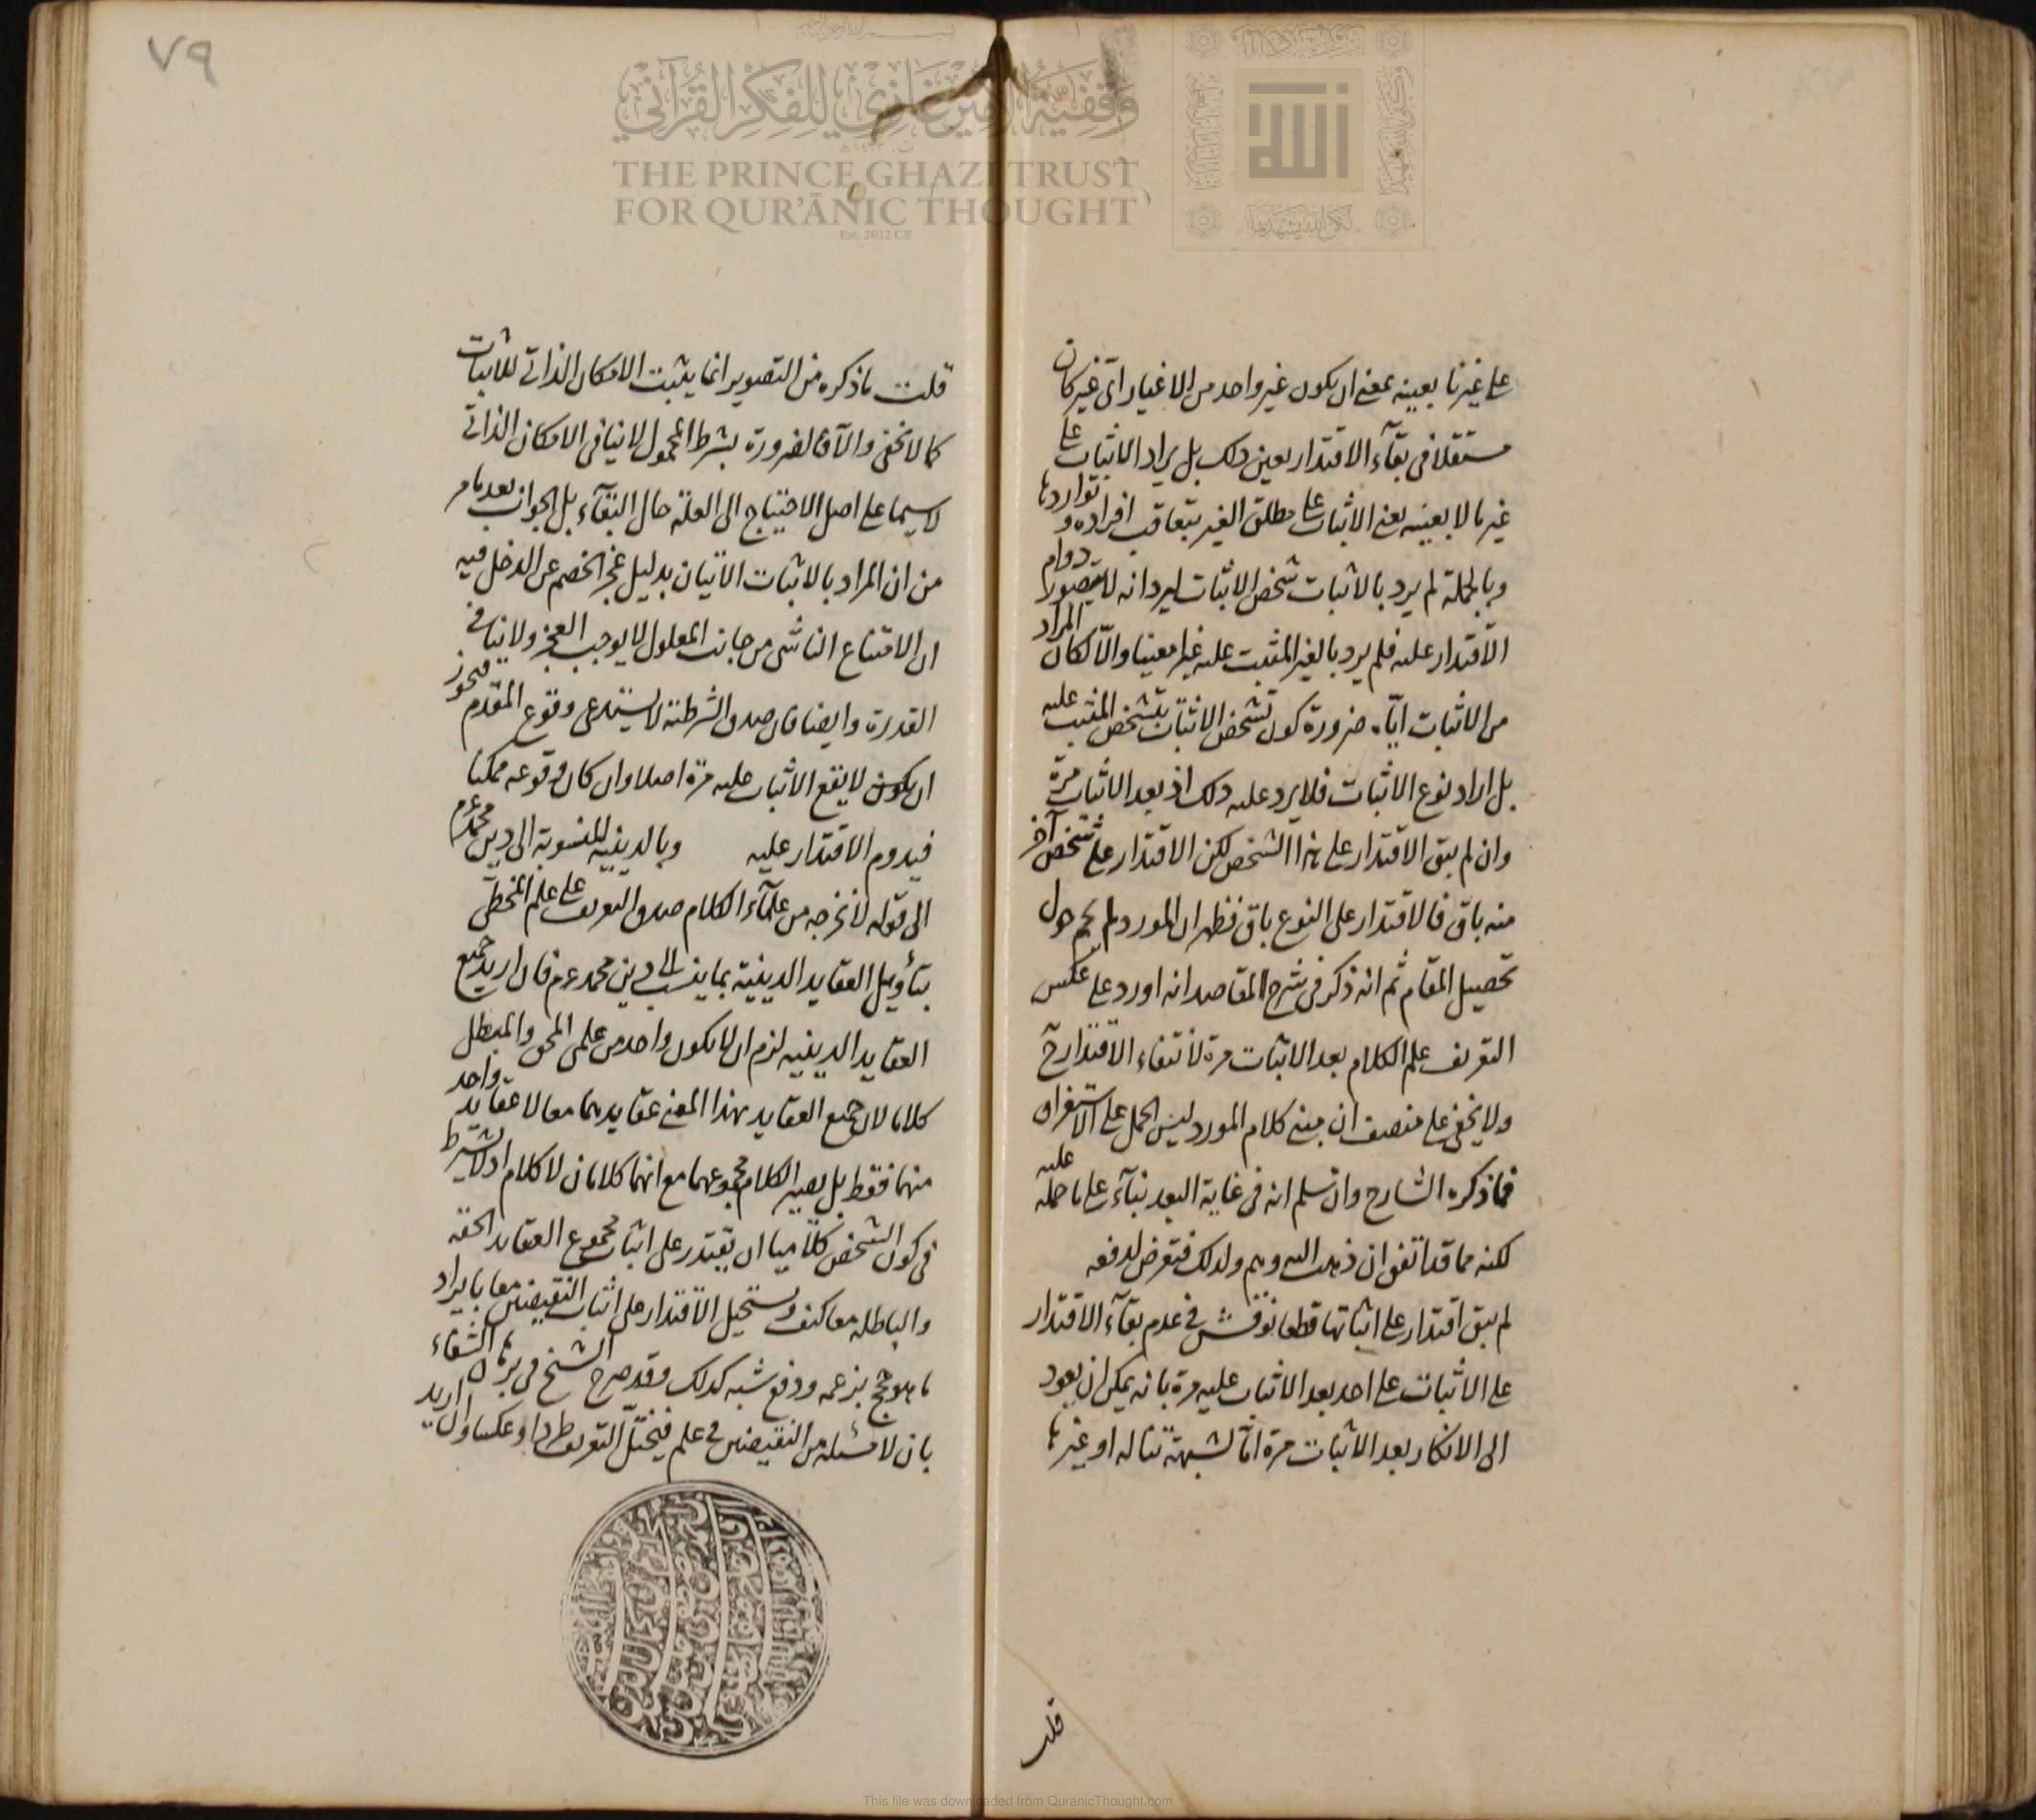 ٧٩
وقفية الأمير غازي للفكر القرآني
THE PRINCE GHAZI TRUST
FOR QUR'ĀNIC THOUGHT
Est. 2012 CE
الله
على غيرنا بعينه بمعنى ان يكون غير واحد من الاغيار اى غير كان
مستقلا فى بقآء الاقتدار بعين ذلك بل يراد الاثبات على
غير ما لا بعينه يعنى الاثبات على مطلق الغير بتعاقب افراده و تواردها
وبالجملة لم يرد بالاثبات شخص الاثبات ليرد انه لا يتصور دوام
الاقتدار عليه فلم يرد بالغير المثبت عليه غيرا معينا والا لكان المراد
من الاثبات اياه ضرورة كون تشخص الاثبات بتشخص المثبت عليه
بل اراد نوع الاثبات فلا يرد عليه ذلك اذ بعد الاثبات مرة
وان لم يبق الاقتدار على هذا الشخص لكن الاقتدار على شخص آخر
منه باق فالاقتدار على النوع باق فظهر ان المورد لم يحم حول
تحصيل المقام ثم انه ذكر فى شرح المقاصد انه اورد على عكس
التعريف علم الكلام بعد الاثبات مرة لانتفاء الاقتدار ح
ولا يخفى على منصف ان مبنى كلام المورد ليس الحمل على الاستغراق
فما ذكره الشارح وان سلم انه فى غاية البعد بنآء على ما حمله عليه
لكنه مما قد اتفق ان ذهب اليه وهم ولذلك فتعرض لدفعه
لم يبق اقتدار على اثباتها قطعا نوقش فى عدم بقآء الاقتدار
على الاثبات على احد بعد الاثبات عليه مرة بانه يمكن ان يعود
الى الانكار بعد الاثبات مرة اما لشبهة تناله او غيرها
قلت
قلت ما ذكره من التصوير انما يثبت الامكان الذاتى للاثبات
كما لا يخفى والآن الضرورة بشرط المحمول لا ينافى الامكان الذاتى
لا سيما على اصل الاحتياج الى العلة حال البقآء بل الجواب بعد ما مر
من ان المراد بالاثبات الاتيان بدليل عجز الخصم عن الدخل فيه
ان الامتناع الناشى من جانب المعلول لا يوجب العجز ولا ينافى
القدرة وايضا فان صدق الشرطية لا يستدعى وقوع المقدم فيجوز
ان يكون لا يقع الاثبات عليه مرة اصلا وان كان وقوعه ممكنا
فيدوم الاقتدار عليه وبالدينية المنسوبة الى دين محمد عم
الى قوله لا نخرجه من علمآء الكلام صدق التعريف على علم المخطى
بتأويل العقايد الدينية بما ينسب الى دين محمد عم فان اريد جميع
العقايد الدينية لزم ان لا يكون واحد من علمى المحق والمبطل
كلاما لان جميع العقايد بهذا المعنى عقايدهما معا لا عقايد واحد
منهما فقط بل يصير الكلام مجموعهما مع انهما كلامان لا كلام اذ لا يشترط
فى كون الشخص كلاميا ان يقتدر على اثبات مجموع العقايد الحقة
والباطلة معا كيف ويستحيل الاقتدار على اثبات النقيضين معا بايراد
ما هو حجج بزعمه ودفع شبه كذلك وقد صرح الشيخ فى برهان الشفاء
بان لا مسئلة من النقيضين فى علم فيختل التعريف طردا وعكسا وان اريد
This file was downloaded from QuranicThought.com